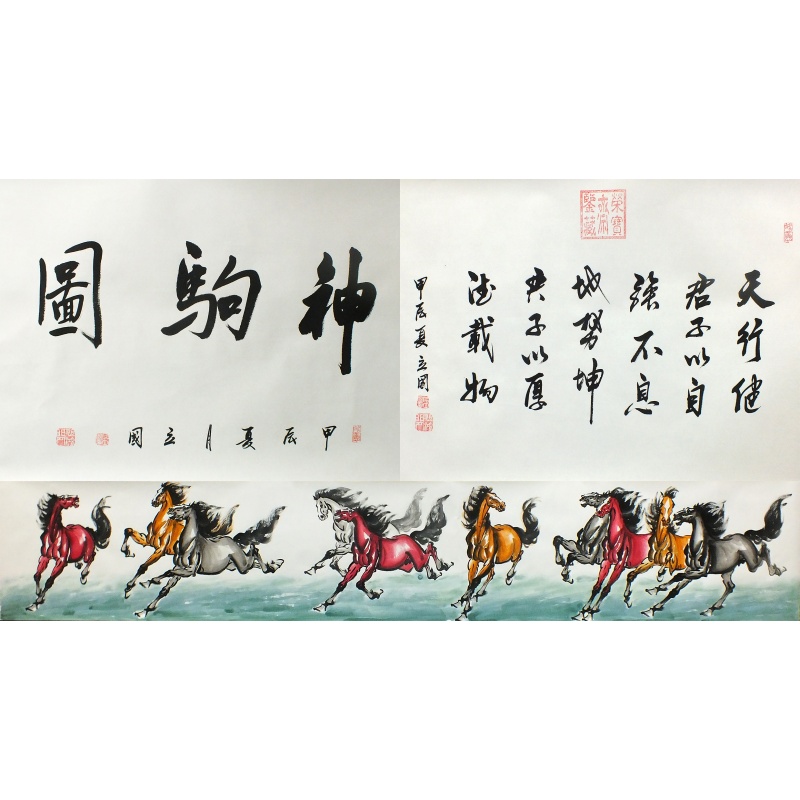 神駒圖
甲辰夏月立國
天行健
君子以自
強不息
地势坤
君子以厚
德載物
甲辰夏立国
榮寶
鑒藏